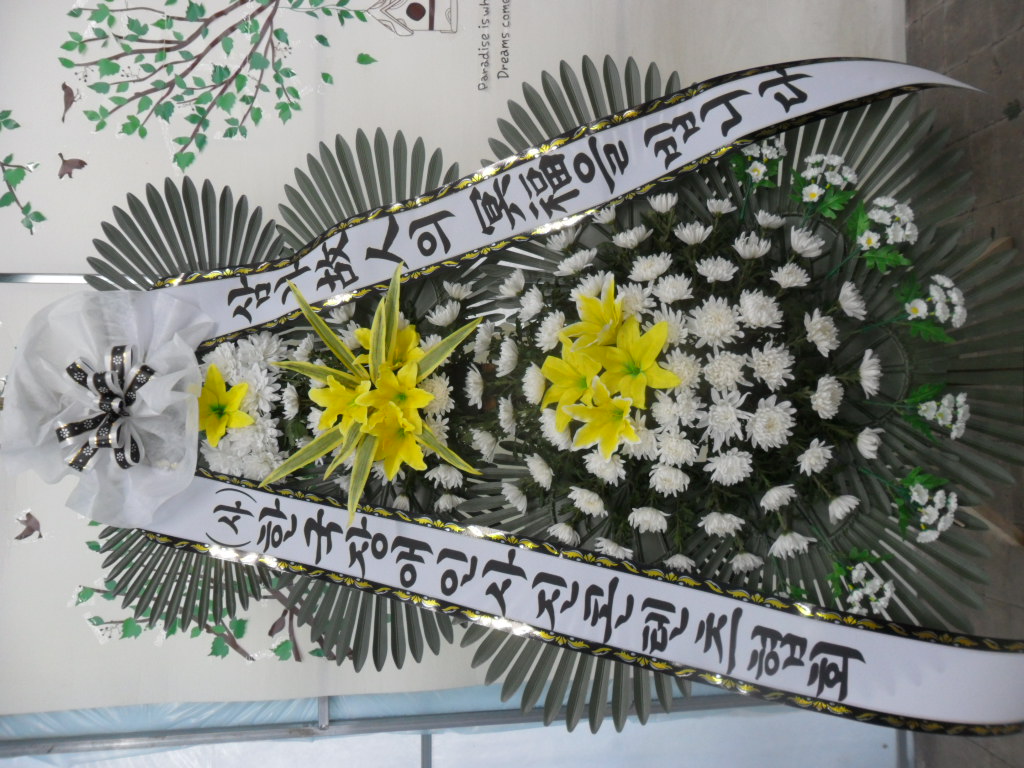 Paradise is wh
Dreams come
삼가 故人의 冥福을 빕니다
(사)한국장애인사진콘텐츠협회